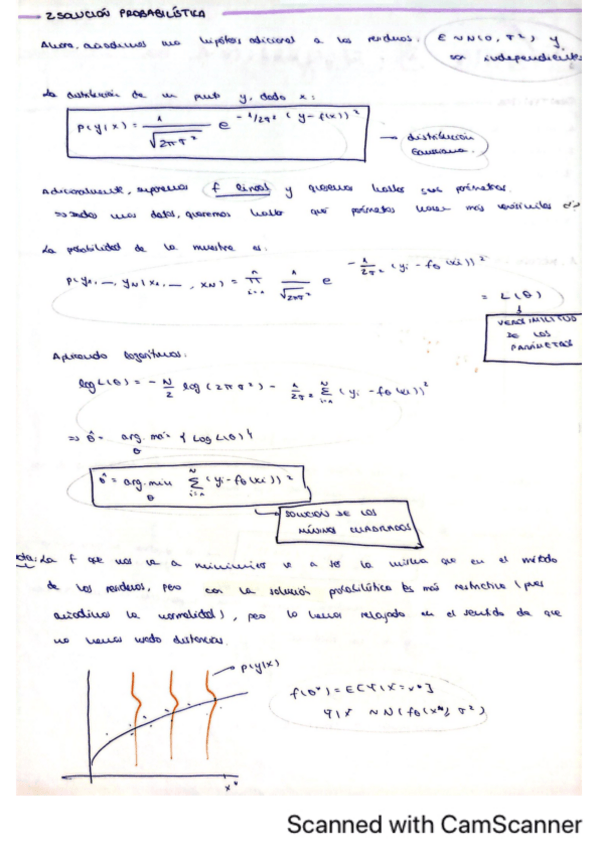 2 SOLUCIÓN PROBABILÍSTICA
Ahora, añadimos una hipótesis adicional a los residuos: ε ~ N(0, σ²) y
son independientes
La distribución de un punto y, dado x:
p(y|x) = 1/√(2πσ²) e^(-1/2σ² (y-f(x))²) → distribución
Gaussiana.
Adicionalmente, suponemos f lineal y queremos hallar sus parámetros.
⇒ dados unos datos, queremos hallar qué parámetros hacen más verosímiles
La probabilidad de la muestra es:
p(y₁, ..., y_N | x₁, ..., x_N) = ∏_{i=1}^{n} 1/√(2πσ²) e^(-1/2σ² (y_i - f_θ(x_i))²) = L(θ)
VEROSIMILITUD
DE LOS
PARÁMETROS
Aplicando logaritmos:
log L(θ) = -N/2 log(2πσ²) - 1/2σ² Σ_{i=1}^{N} (y_i - f_θ(x_i))²
⇒ θ̂ = arg. máx_θ { Log L(θ) }
θ̂ = arg. min_θ Σ_{i=1}^{N} (y_i - f_θ(x_i))²
SOLUCIÓN DE LOS
MÍNIMOS CUADRADOS
Nota: La f que nos va a minimizar va a ser la misma que en el método
de los residuos, pero con la solución probabilística es más restrictiva (pues
añadimos la normalidad), pero lo hemos relajado en el sentido de que
no hemos usado distancias.
p(y|x)
f(θ*) = E[Y|X=x*]
Y|X ~ N(f_θ(x*), σ²)
x*
Scanned with CamScanner